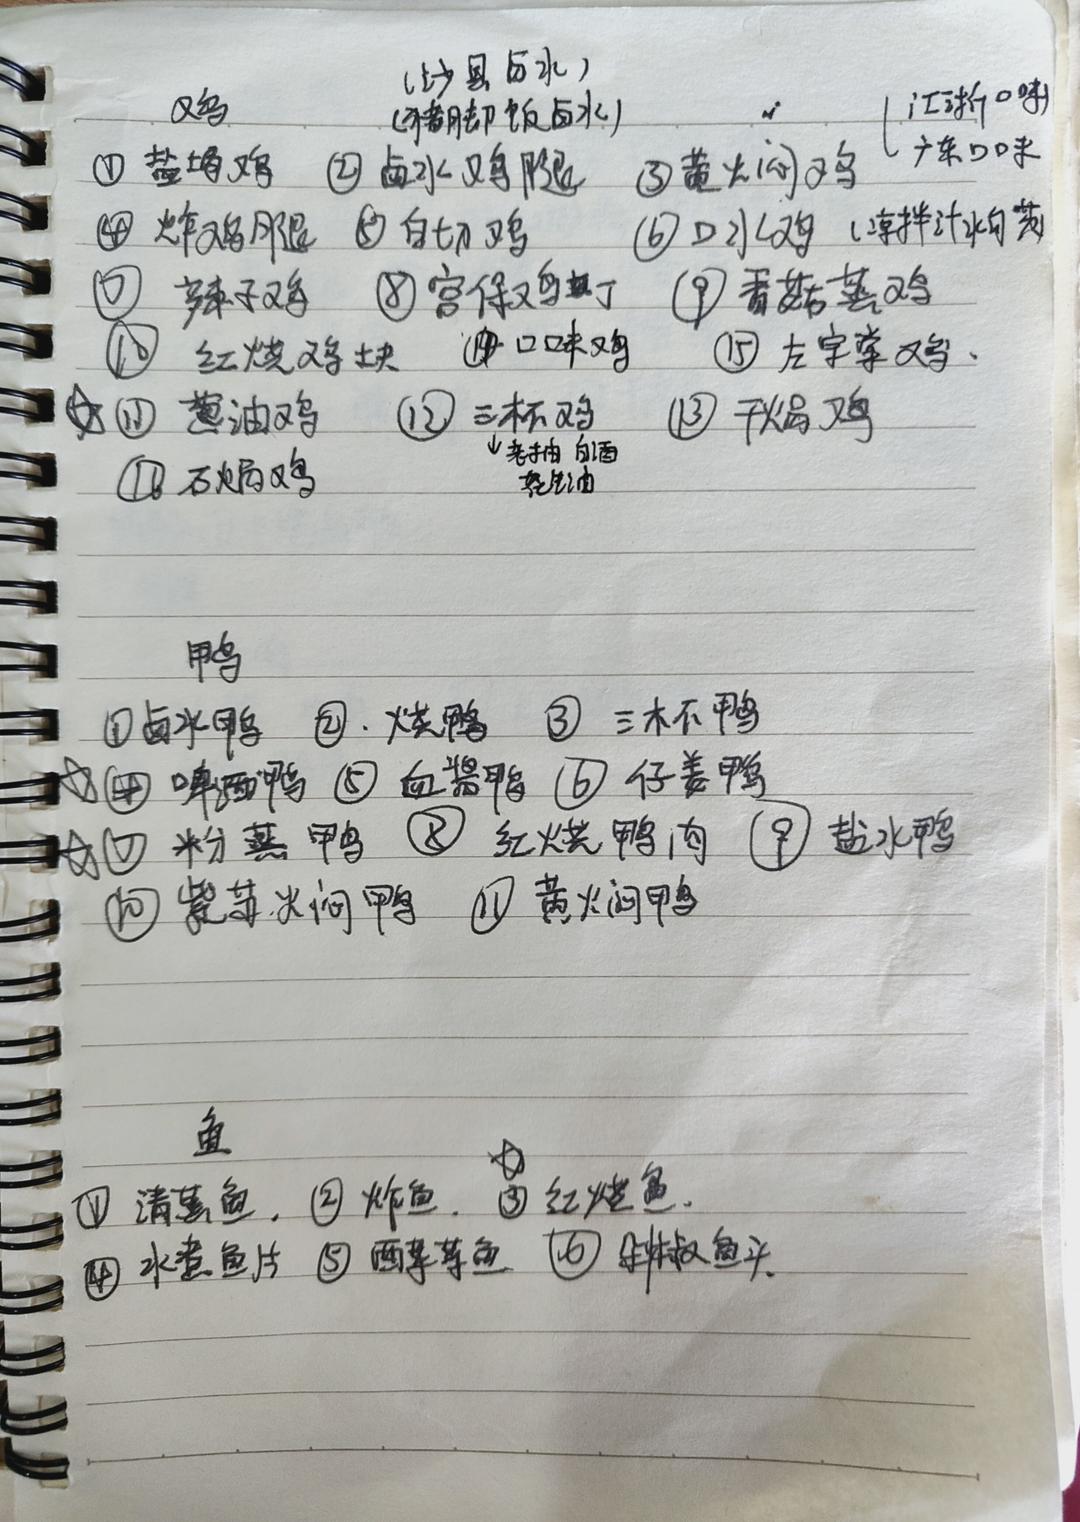 (沙县卤水)
鸡 (猪脚饭卤水) 江浙口味
广东口味
① 盐焗鸡 ② 卤水鸡腿 ③ 黄焖鸡
④ 炸鸡腿 ⑤ 白切鸡 ⑥ 口水鸡 (凉拌汁水
⑦ 辣子鸡 ⑧ 宫保鸡丁 ⑨ 香菇蒸鸡
⑩ 红烧鸡块 ⑭ 口味鸡 ⑮ 左宗棠鸡.
☆ ⑪ 葱油鸡 ⑫ 三杯鸡 ⑬ 干锅鸡
↓老抽 白酒
⑯ 石锅鸡 花生油
鸭
① 卤水鸭 ②. 烧鸭 ③ 三杯鸭
☆ ④ 啤酒鸭 ⑤ 血酱鸭 ⑥ 仔姜鸭
☆ ⑦ 粉蒸鸭 ⑧ 红烧鸭肉 ⑨ 盐水鸭
⑩ 紫苏焖鸭 ⑪ 黄焖鸭
鱼
① 清蒸鱼. ② 炸鱼. ☆ ③ 红烧鱼.
④ 水煮鱼片 ⑤ 酉草草鱼 ⑥ 鱼头.